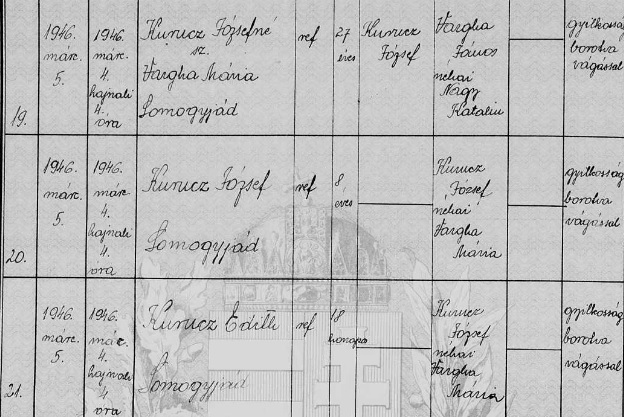 19.
1946.
márc.
5.
1946.
márc.
4.
hajnali
4.
óra
Kurucz Józsefné
sz.
Vargha Mária
Somogyjád
ref
27
éves
Kurucz
József
Vargha
János
néhai
Nagy
Katalin
gyilkosság
borotva
vágással
20.
1946.
márc.
5.
1946.
márc
4.
hajnali
4.
óra
Kurucz József
Somogyjád
ref
8
éves
Kurucz
József
néhai
Vargha
Mária
gyilkosság
borotva
vágással
21.
1946.
márc.
5.
1946.
márc.
4.
hajnali
4.
óra
Kurucz Edith
Somogyjád
ref
18
hónapos
Kurucz
József
néhai
Vargha
Mária
gyilkosság
borotva
vágással